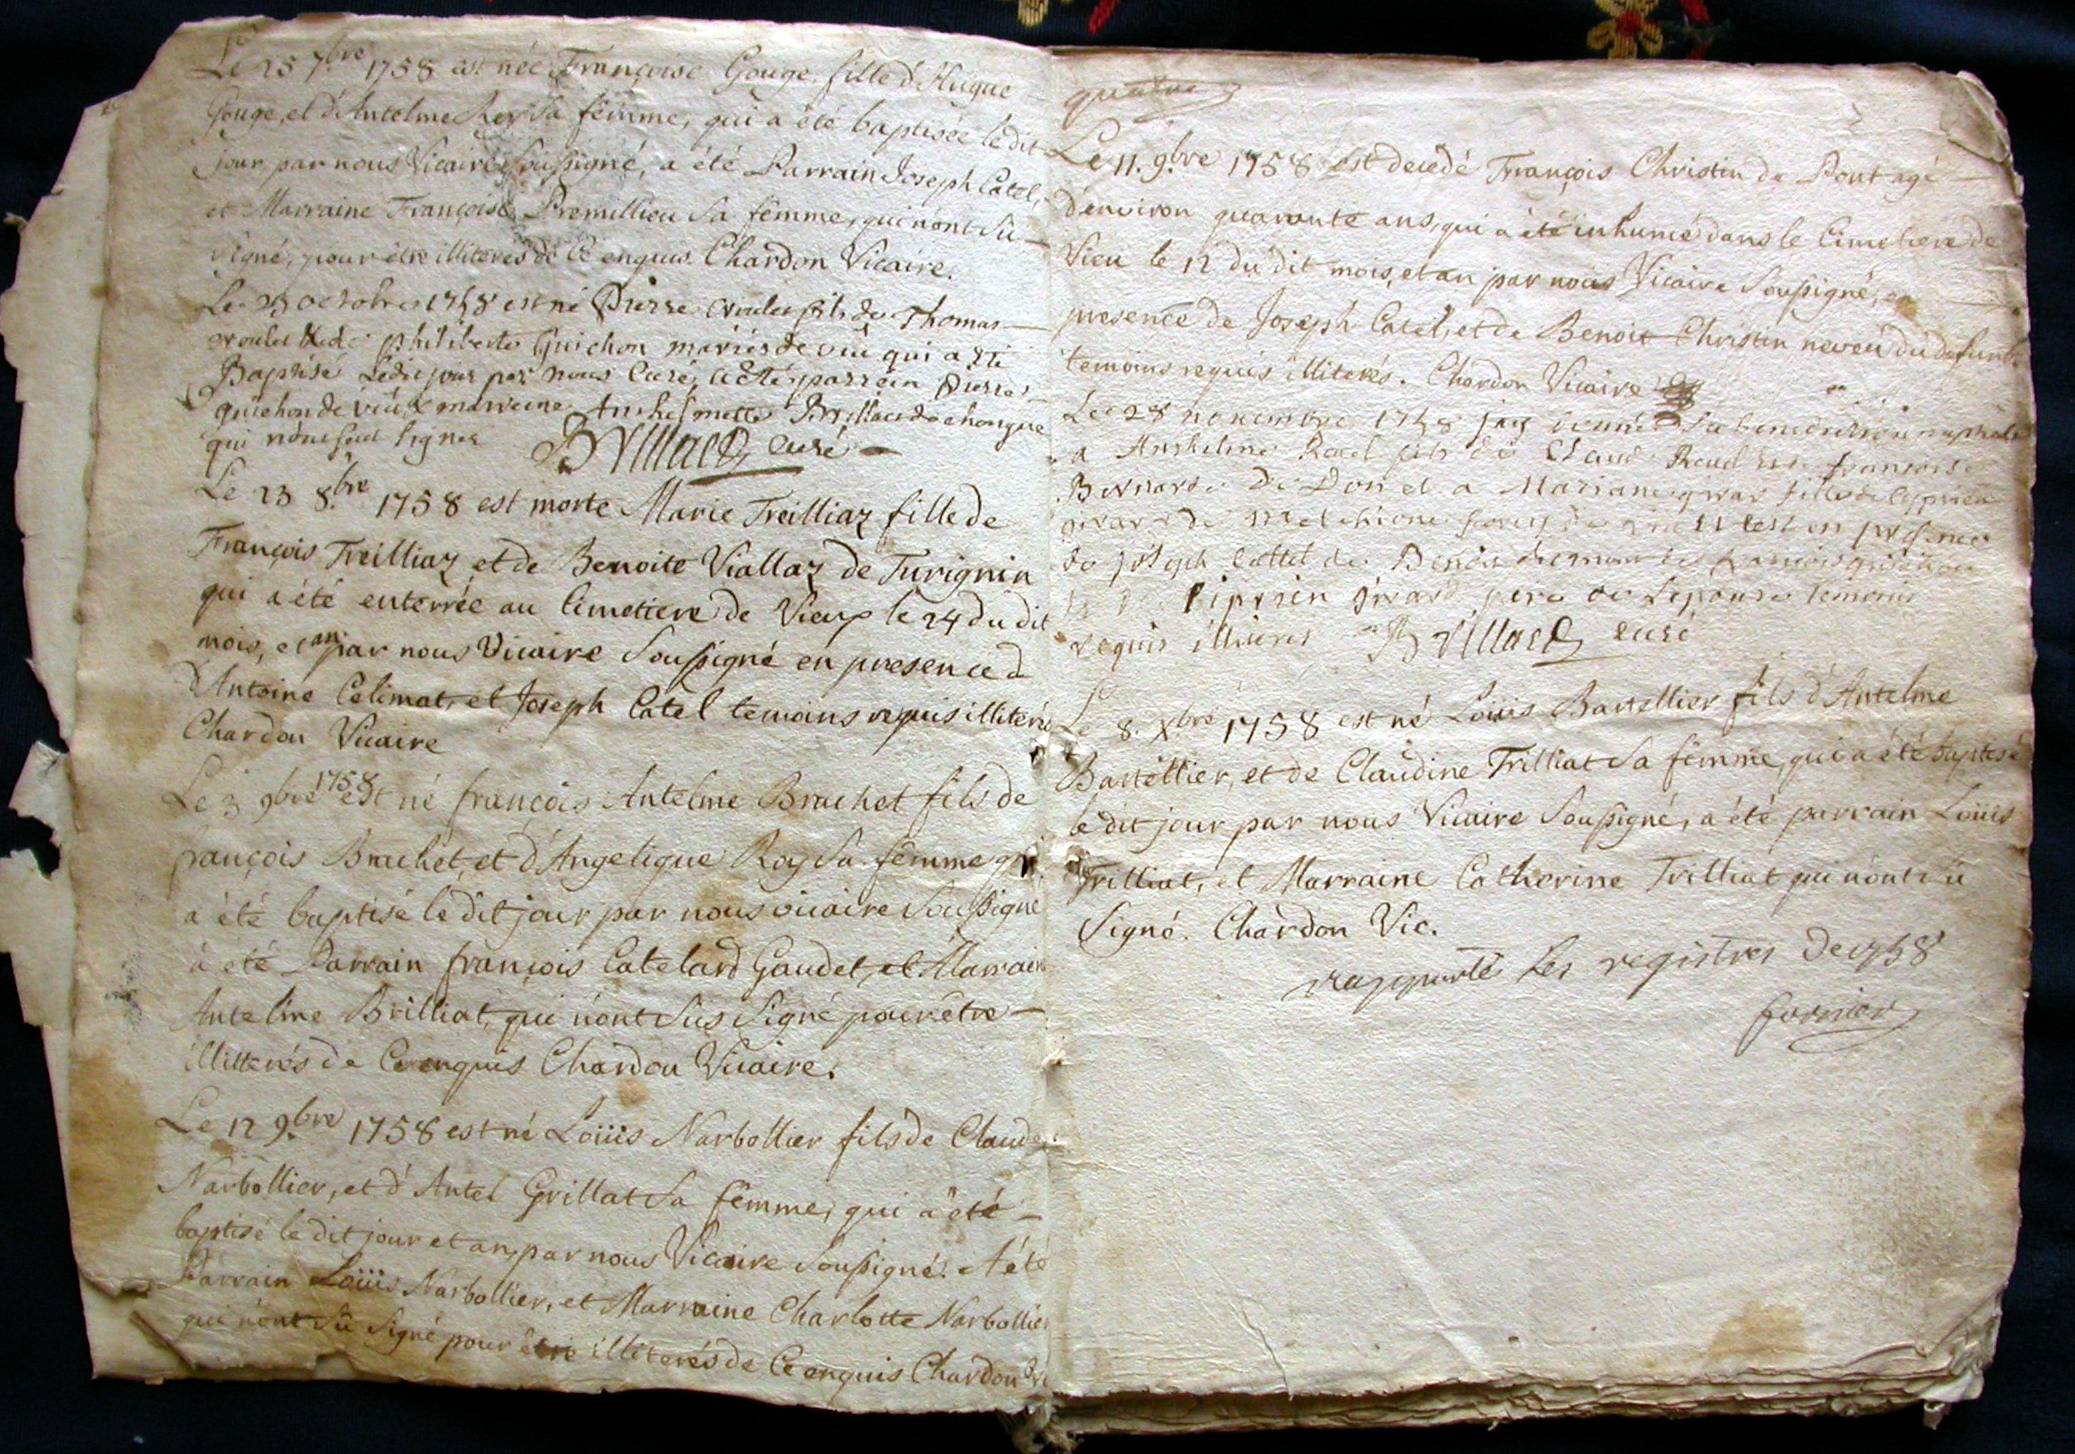 Le 25 7.bre 1758 est née Françoise Gouge, fille d'Hugue
Gouge, et d'Antelme Rey sa fêmme, qui a été baptisée le dit
jour, par nous Vicaire soussigné, a été Parrain Joseph Catel,
et Marraine Françoise Premillieu sa fêmme, qui n'ont sû
signé, pour être illiterés de ce enquis. Chardon Vicaire.
Le 23 octobre 1758 est né Pierre fils de Thomas
& de philiberte Guichon mariés de vieu qui a été
Baptisé Ledit jour par nous Curé, a été parrain Pierre
guichon de vieu & marreine Anthelmette
qui n'ont seut signer Brillard curé
Le 23 8.bre 1758 est morte Marie Treilliaz fille de
François Treilliaz et de Benoite Viallaz de Turignin
qui a été enterrée au Cimetiere de Vieux le 24 du dit
mois, et an par nous Vicaire soussigné en presence d
Antoine Celimat, et Joseph Catel temoins requis illiteré
Chardon Vicaire
Le 3 9bre 1758 est né françois Antelme Brachet fils de
françois Brachet, et d'Angelique Roy sa fêmme qui
a été baptisé le dit jour par nous vicaire soussigne
a été Parrain françois Catelard Gaudet, et Marraine
Antelme Brilliat, qui n'ont sus signé pour être
illiterés de Ce enquis Chardon Vicaire.
Le 12 9.bre 1758 est né Loüis Narbollier fils de Claude
Narbollier, et d'Antel Grillat sa fêmme, qui a été
baptisé le dit jour et an, par nous Vicaire soussigné. A été
Parrain Loüis Narbollier, et Marraine Charlotte Narbollier
qui n'ont sû signé pour être illiterés de Ce enquis Chardon
quatre
Le 11. 9.bre 1758 est decedé François Christin de Pont agé
d'environ quarante ans, qui a été inhumé dans le Cimetiere de
Vieu le 12 du dit mois, et an par nous Vicaire soussigné, en
presence de Joseph Catel, et de Benoit Christin neveu du defunt
temoins requis illiterés. Chardon Vicaire
Le 28 novembre 1758 jay donné la benediction nuptiale
a Anthelme fils de Claude françoise
Bernarde De Don et a Mariane girar fille de
girar & de en presence
de joseph Cattel de
girard pere de Lepouse temoins
requis illiteres Brillard curé
Le 8. Xbre 1758 est né Loüis Bartellier fils d'Antelme
Bartellier, et de Claudine Trilliat sa fêmme, qui a été baptisé
le dit jour par nous Vicaire soussigné, a été parrain Loüis
Trilliat, et Marraine Catherine Trilliat qui n'ont sû
signé. Chardon Vic.
rapporté les registres de 1758